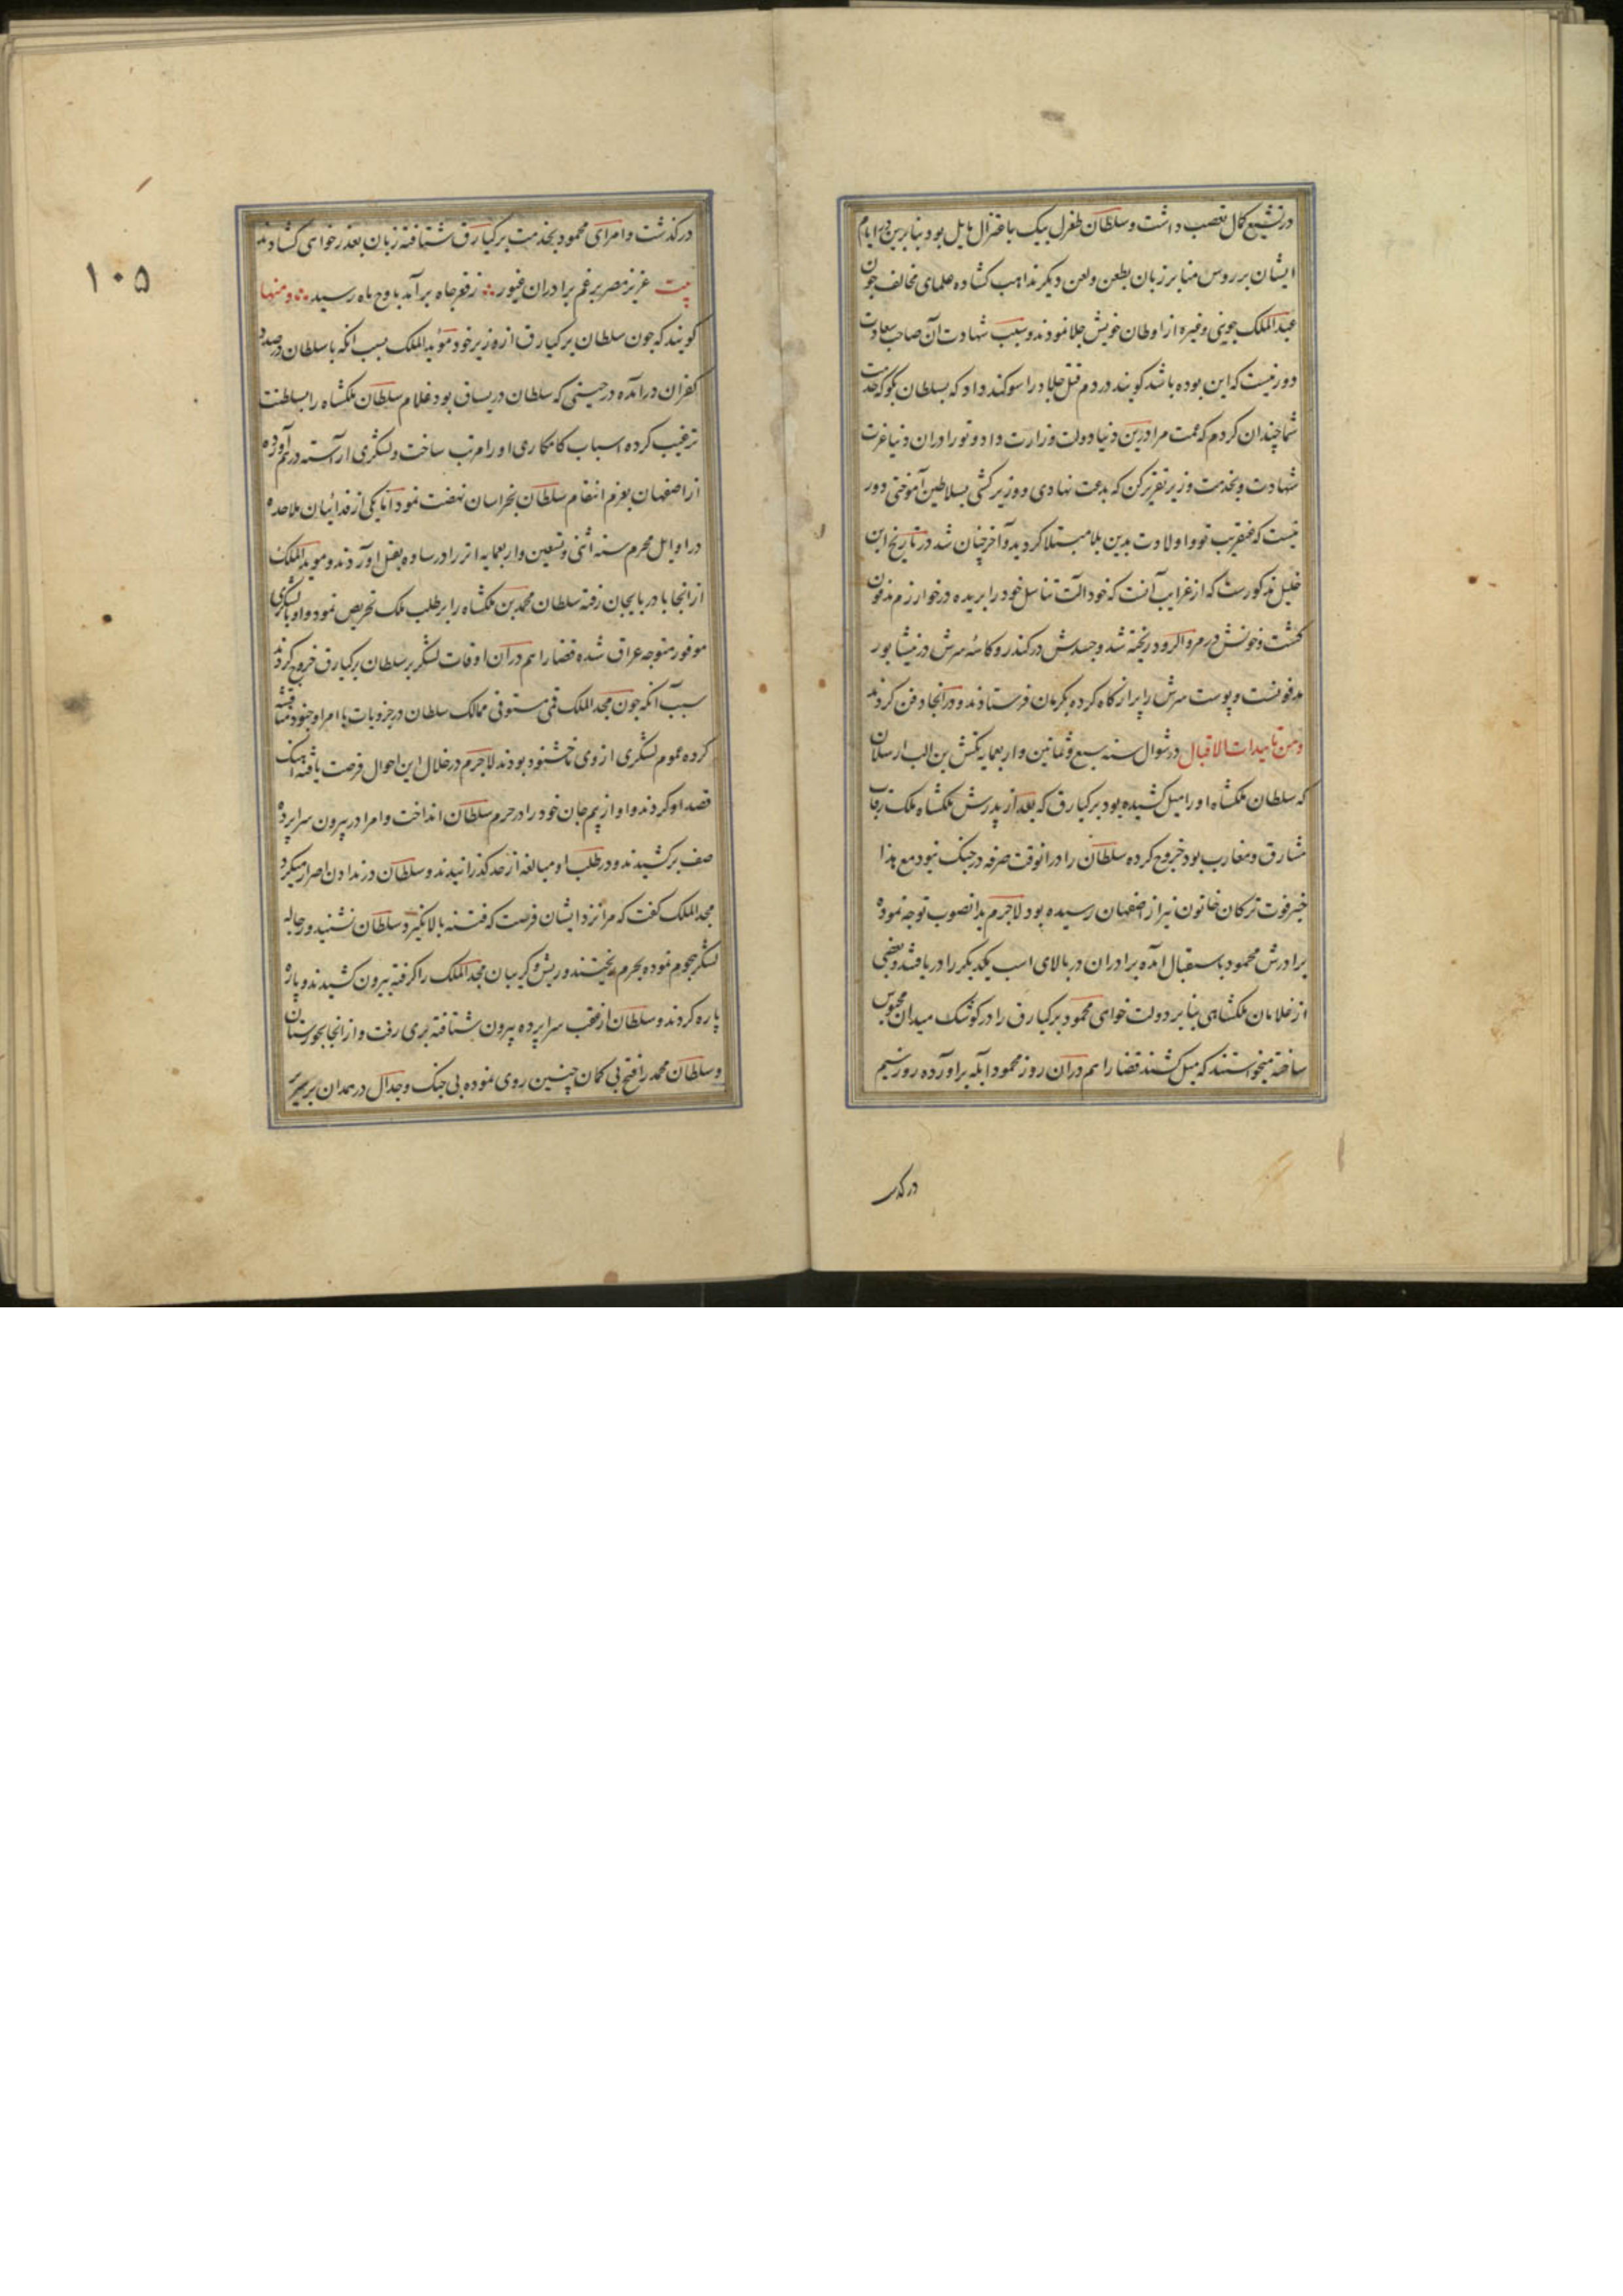 در تشیع کمال تعصب داشت و سلطان طغرل بیک باعتزال مایل بود بنابرین در ایام
ایشان بر روس منابر زبان بطعن و لعن دیکر مذاهب کشاده علمای مخالف چون
عبدالملک جوینی و غیره از اوطان خویش جلا نمودند و سبب شهادت آن صاحب سعادت
دور نیست که این بوده باشد کویند در دم قتل جلاد را سوکند داد که بسلطان بکو که خدمت
شما چندان کردم که عمت مرا درین دنیا دولت وزارت داد و تو را در آن دنیا عزت
شهادت و بخدمت وزیر تقریر کن که بدعت نهادی و وزیر کشی بسلاطین آموختی دور
نیست که عنقریب تو و اولادت بدین بلا مبتلا کردید و آخر چنان شد در تاریخ ابن
خلیل مذکورست که از غرایب آنست که خود آلت تناسل خود را بریده در خوارزم مدفون
کشت و خونش در مرو الرود ریخته شد و جسدش در کندر و کاسه سرش در نیشابور
مدفونست و پوست سرش را پر از کاه کرده بکرمان فرستادند و در آنجا دفن کردند
ومن تاییدات الاقبال در شوال سنه سبع و ثمانین و اربعمایه تکش بن الب ارسلان
که سلطان ملکشاه او را میل کشیده بود بر کیارق که بعد از پدرش ملکشاه ملک رقاب
مشارق و مغارب بود خروج کرده سلطان را در انوقت صرفه در جنک نبود مع هذا
خبر فوت ترکان خاتون نیز از اصفهان رسیده بود لاجرم بدانصوب توجه نموده
برادرش محمود باستقبال آمده برادران در بالای اسب یکدیکر را دریافتند و بعضی
از غلامان ملکشاهی بنابر دولت خواهی محمود برکیارق را در کوشک میدان محبوس
ساخته میخواستند که میل کشند قضا را هم در آن روز محمود ابله براورده روز سیم
درکذ
درکذشت و امرای محمود بخدمت برکیارق شتافته زبان بعذر خواهی کشادند
بیت عزیز مصر برغم برادران غیور ز قعر چاه برآمد باوج ماه رسید ومنها
کویند که چون سلطان برکیارق از وزیر خود مؤید الملک بسبب آنکه با سلطان در صدد
کفران درآمده در حینی که سلطان در یساق بود غلام سلطان ملکشاه را بسلطنت
ترغیب کرده اسباب کامکاری او را مرتب ساخت و لشکری آراسته در هم آورده
از اصفهان بعزم انتقام سلطان بخراسان نهضت نمود اما یکی از فدائیان ملاحده
در اوایل محرم سنه اثنی و تسعین و اربعمایه انر را در ساوه بقتل اوردند و موید الملک
از انجا باذربایجان رفته سلطان محمد بن ملکشاه را بر طلب ملک تحریص نمود و او با لشکری
موفور متوجه عراق شده قضا را هم در آن اوقات لشکر بر سلطان برکیارق خروج کردند
سبب آنکه چون مجد الملک قمی مستوفی ممالک سلطان در جزویات با امرا و جنود مناقشه
کرده عموم لشکری از وی ناخشنود بودند لاجرم در خلال این احوال فرصت یافته
قصد او کردند و او از بیم جان خود را در حرم سلطان انداخت و امرا در بیرون سراپرده
صف برکشیدند و در طلب او مبالغه از حد کذرانیدند و سلطان در ندادن اصرار میکرد
مجد الملک کفت که مرا نزد ایشان فرست که فتنه بالا نکیرد سلطان نشنید و رجاله
لشکر هجوم نموده بحرم ریختند و ریش و کریبان مجد الملک را کرفته بیرون کشیدند و پاره
پاره کردند و سلطان از عقب سراپرده بیرون شتافته بری رفت و از انجا بخوزستان
و سلطان محمد را فتح بی کمان چنین روی نموده بی جنک و جدال در همدان بر سریر
۱۰۵